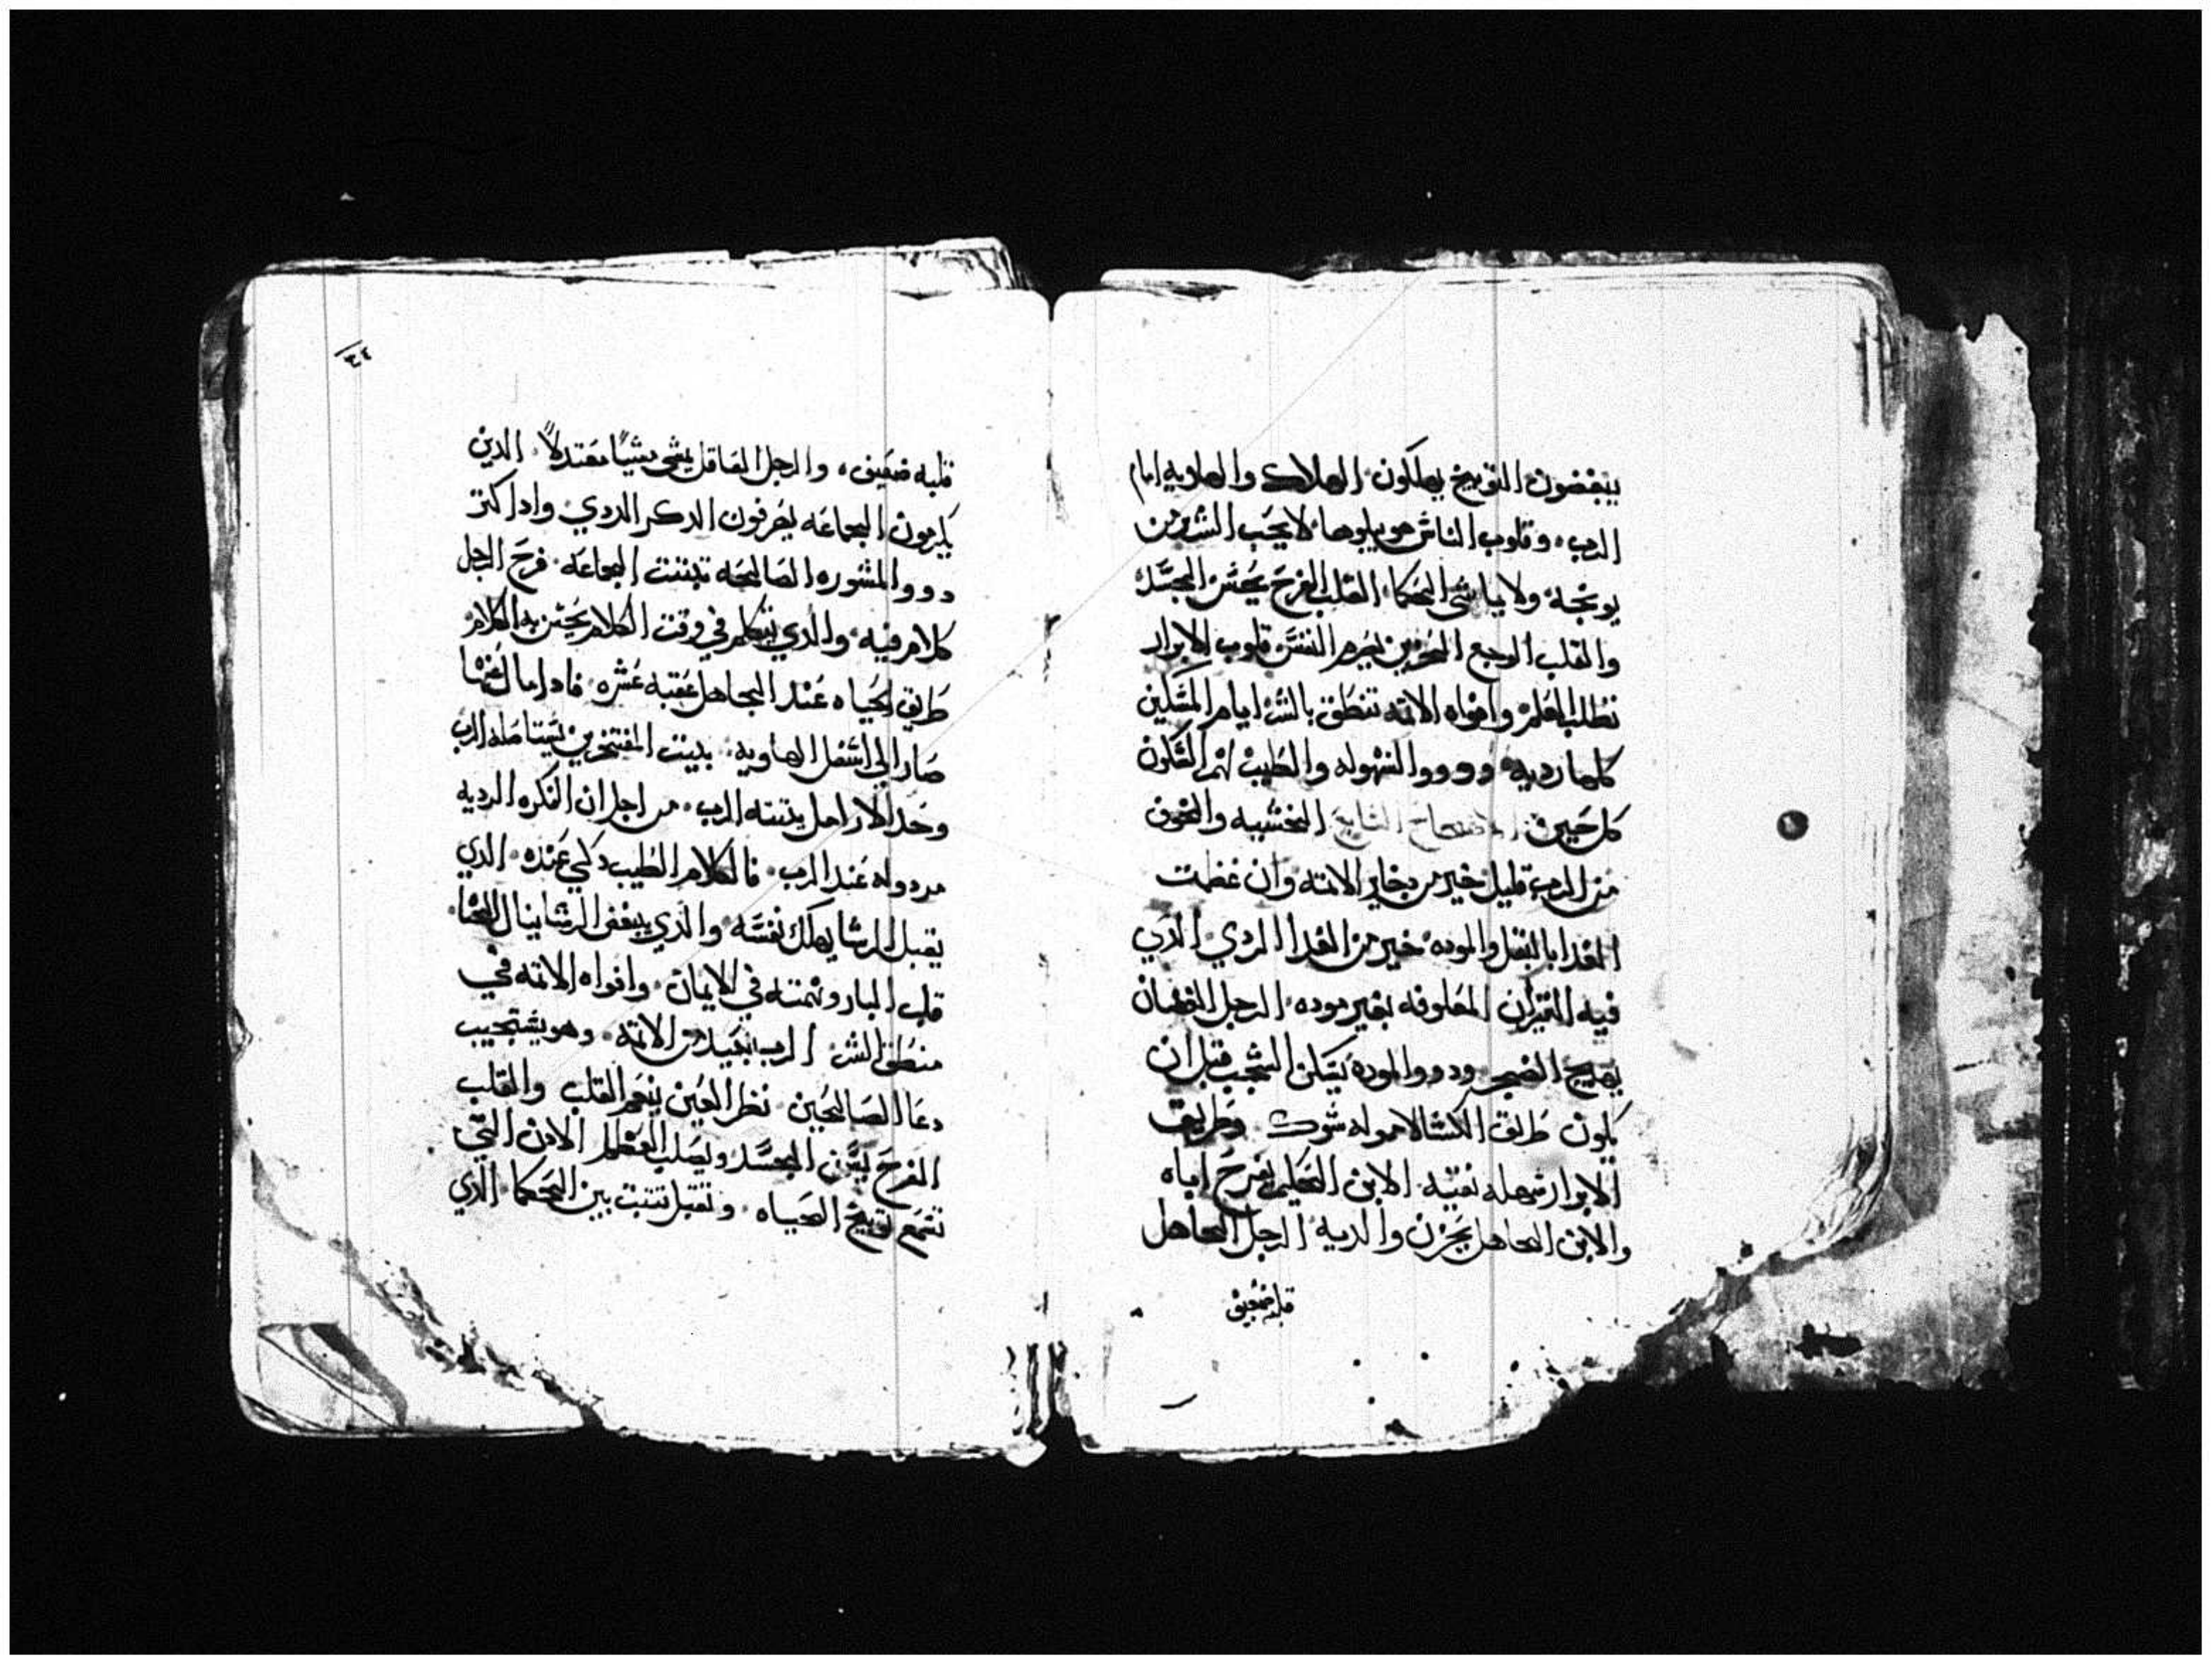 يبغضون التوبيخ يهلكون الهلاك والهاويه امام
الرب وقلوب الناس هو يبلوها لا يحب الشرير من
يوبخه ولا يماشي الحكما القلب الفرح يحسن الجسد
والقلب الوجع الحزين يهرم النفس قلوب الابرار
تطلب العلم وافواه الاتمه تنطق بالشر ايام المسكين
كلها رديه وذووا السهوله والطيب لهم السكون
كل حين الاصحاح السابع الخشيه والخوف
من الرب قليل خير من دخاير الاتمه وان عظمت
الغدا بالبقل والموده خير من الغدا الردي الذي
فيه التيران المعلوفه بغير موده الرجل الغضبان
يهيج الضجر وذووا الموده يسكن الشجب قبل ان
يكون طريق الكسالا مموله شوك وطريق
الابرار سهله نقيه الابن الحكيم يفرح اباه
والابن الجاهل يحزن والديه الرجل الجاهل
قلبه ضعيف
٣٤
قلبه ضعيف والرجل العاقل يمشي مشيًا معتدلاً الدين
يكرمون الجماعه يعرفون الدكر الردي واداكتر
دووا المشوره الصالحه تبتت الجماعه فرح الرجل
كلام فيه والدي يتكلم في وقت الكلام يحسن به الكلام
طريق الحياه عند الجاهل عقبه عسره فادا مال عنها
صار الي اسفل الهاويه بيت المفتخرين يستاصله الرب
وحد الارامل يتبته الرب من اجل ان الفكره الرديه
مردوله عند الرب فالكلام الطيب دكي عنده الدي
يقبل الرشا يهلك نفسه والدي يبغض الرشا ينال الحيا
قلب البار ونهمته في الايمان وافواه الاتمه في
منطق الشر الرب بعيد من الاتمه وهو يستجيب
دعا الصالحين نظر العين ينعم القلب والقلب
الفرح يسمن الجسد ويصلب العظم الادن التي
تسمع توبيخ الحياه وتقبل تتبت بين الحكما الدي